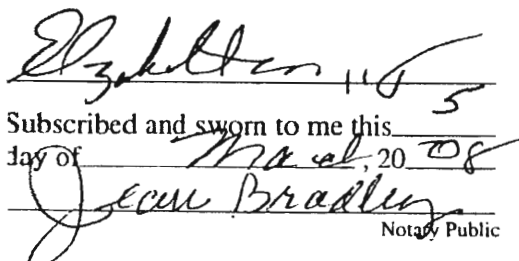 5
Subscribed and sworn to me this
day of March, 20 08
Jean Bradley
Notary Public